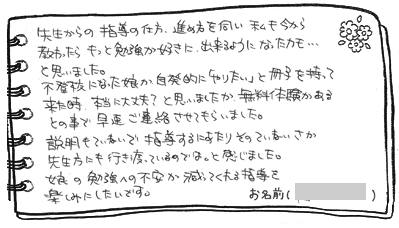 先生からの指導の仕方、進め方を伺い私も今から
教わったらもっと勉強が好きに、出来るようになったカモ…
と思いました。
不登校になった娘が自発的に「やりたい」と冊子を持って
来た時、本当に大丈夫?と思いましたが、無料体験がある
との事で早速ご連絡させてもらいました。
説明もていねいで指導するにあたりそのていねいさが
先生方にも行き渡っているのでは。と感じました。
娘の勉強への不安が減ってくれる指導を
楽しみにしたいです。
お名前(
)